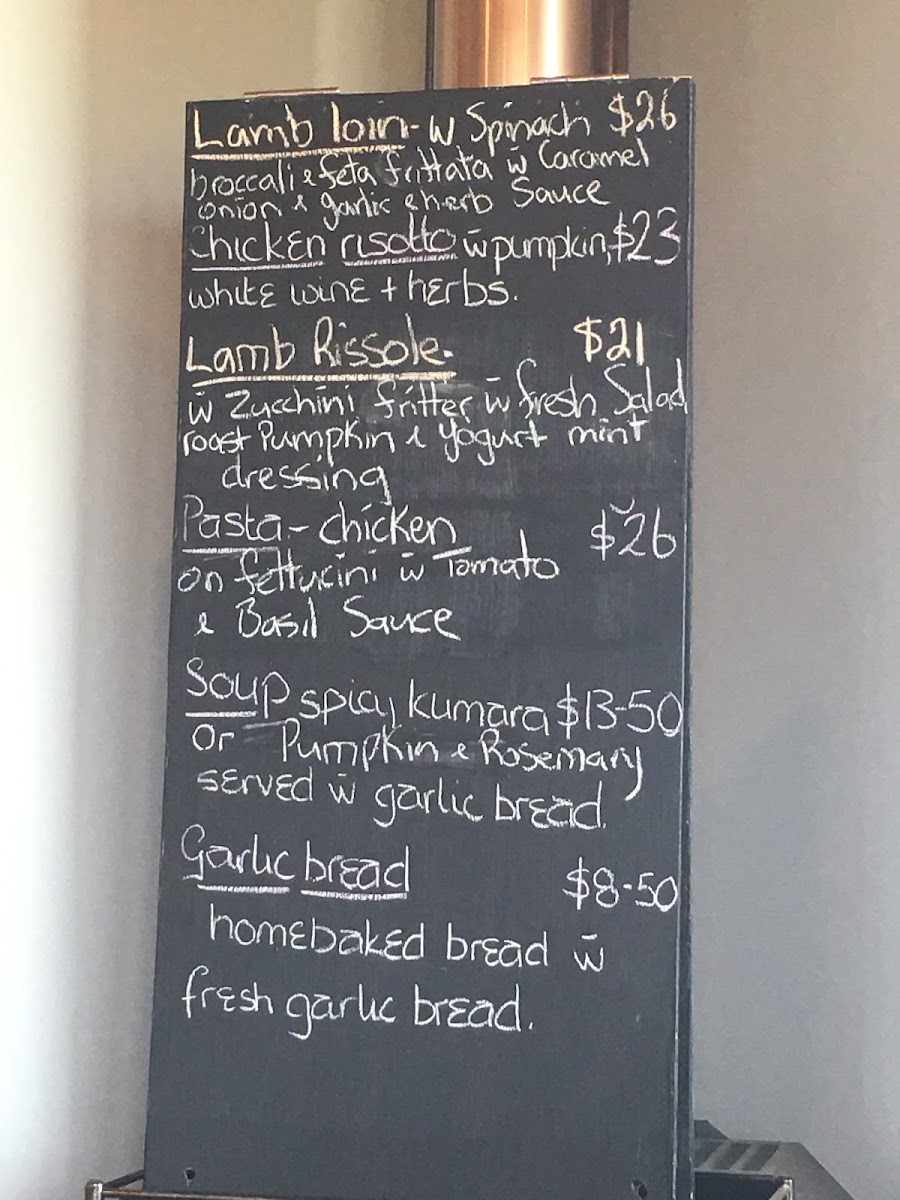 Lamb loin - w Spinach $26
broccali & feta frittata w̄ Caramel
onion & garlic & herb Sauce
Chicken risotto w̄ pumpkin, $23
white wine + herbs.
Lamb Rissole - $21
w̄ Zucchini fritter w̄ fresh Salad
roast Pumpkin & Yogurt mint
dressing
Pasta - chicken $26
on fettucini w̄ Tomato
& Basil Sauce
Soup spicy kumara $13-50
or Pumpkin & Rosemary
served w̄ garlic bread.
Garlic bread $8-50
homebaked bread w̄
fresh garlic bread.